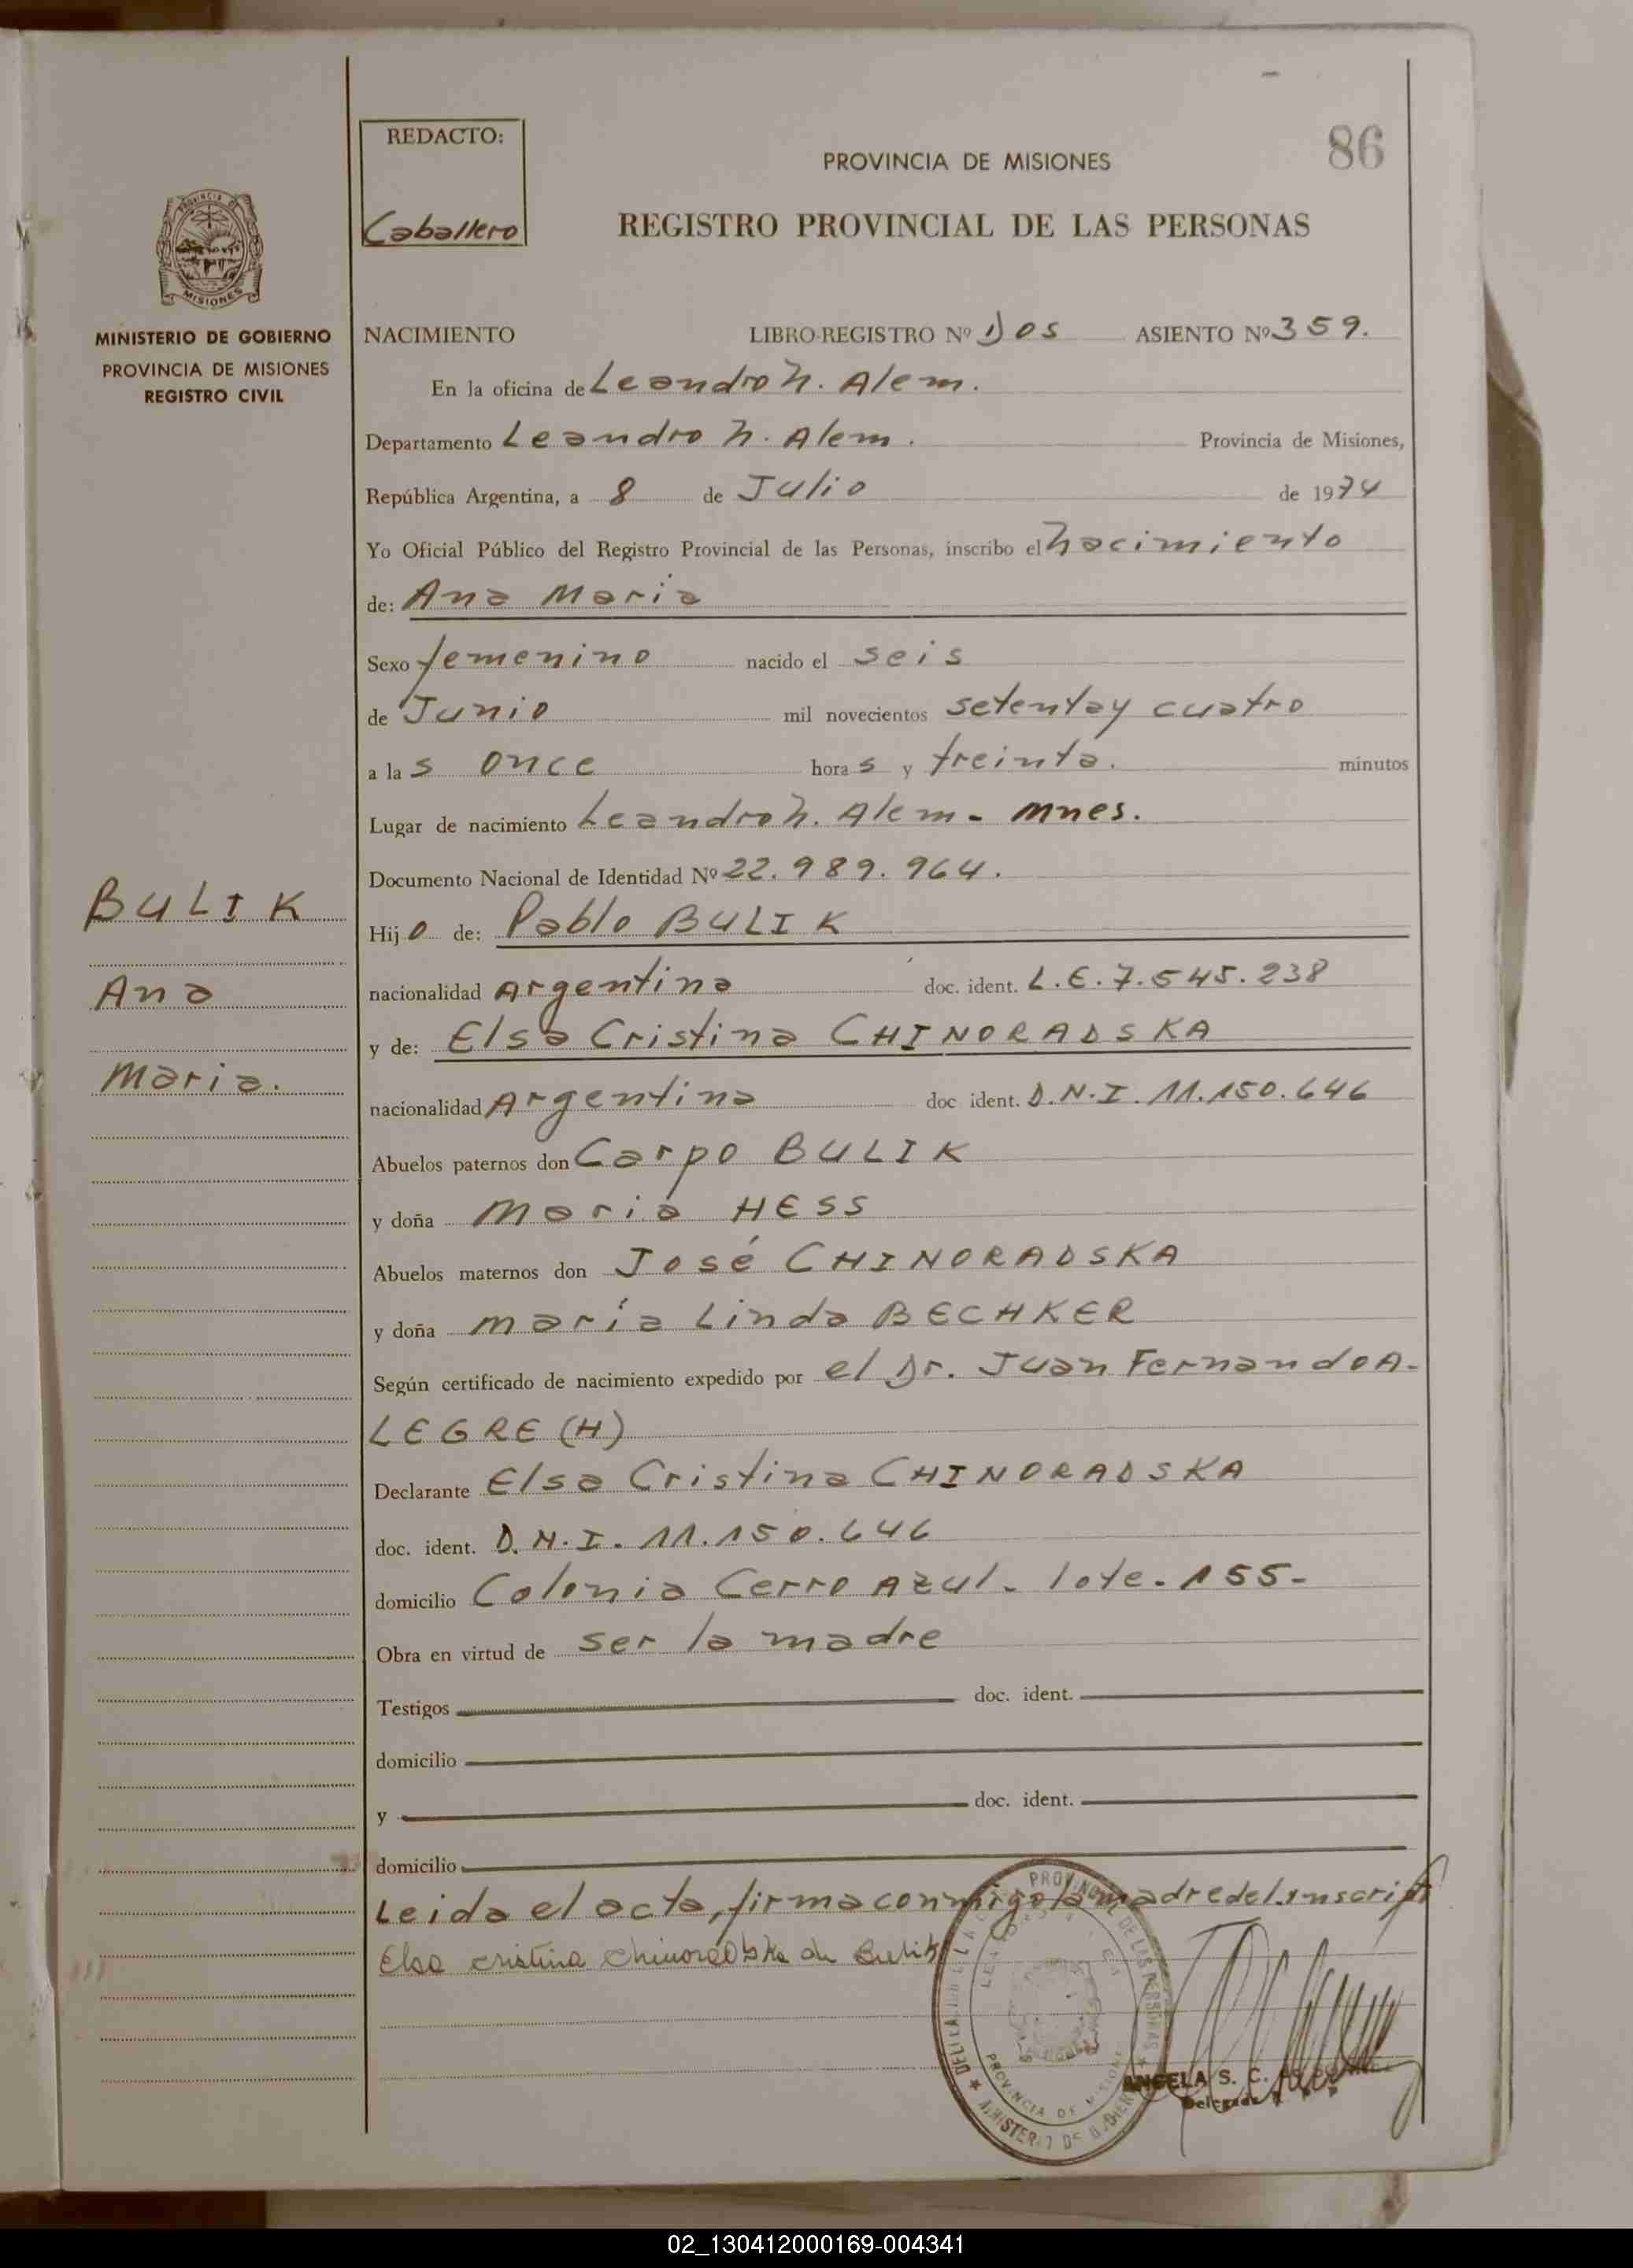 86
REDACTO:
Caballero
PROVINCIA DE MISIONES
REGISTRO PROVINCIAL DE LAS PERSONAS
PROVINCIA DE
MISIONES
MINISTERIO DE GOBIERNO
PROVINCIA DE MISIONES
REGISTRO CIVIL
NACIMIENTO LIBRO-REGISTRO Nº Dos ASIENTO Nº 359.
En la oficina de Leandro N. Alem.
Departamento Leandro N. Alem. Provincia de Misiones,
República Argentina, a 8 de Julio de 1974
Yo Oficial Público del Registro Provincial de las Personas, inscribo el nacimiento
de: Ana Maria
Sexo femenino nacido el seis
de Junio mil novecientos setenta y cuatro
a las once horas y treinta. minutos
Lugar de nacimiento Leandro N. Alem - Mnes.
Documento Nacional de Identidad Nº 22.989.964.
BULIK
Ana
Maria.
Hijo de: Pablo BULIK
nacionalidad Argentina doc. ident. L.E. 7.545.238
y de: Elsa Cristina CHINORADSKA
nacionalidad Argentina doc ident. D.N.I. 11.150.646
Abuelos paternos don Carpo BULIK
y doña Maria HESS
Abuelos maternos don José CHINORADSKA
y doña María Linda BECHKER
Según certificado de nacimiento expedido por el Dr. Juan Fernando A-
LEGRE (H)
Declarante Elsa Cristina CHINORADSKA
doc. ident. D.N.I. 11.150.646
domicilio Colonia Cerro Azul - lote - 155-
Obra en virtud de ser la madre
Testigos doc. ident.
domicilio
y doc. ident.
domicilio
Leida el acta, firma conmigo la madre del inscript
Elsa cristina Chinoradska de Bulik
PROVINCIAL DE LAS PERSONAS
PROVINCIA DE MISIONES
MINISTERIO DE GOBIERNO
ANGELA S. C.
Delegada
02_130412000169-004341